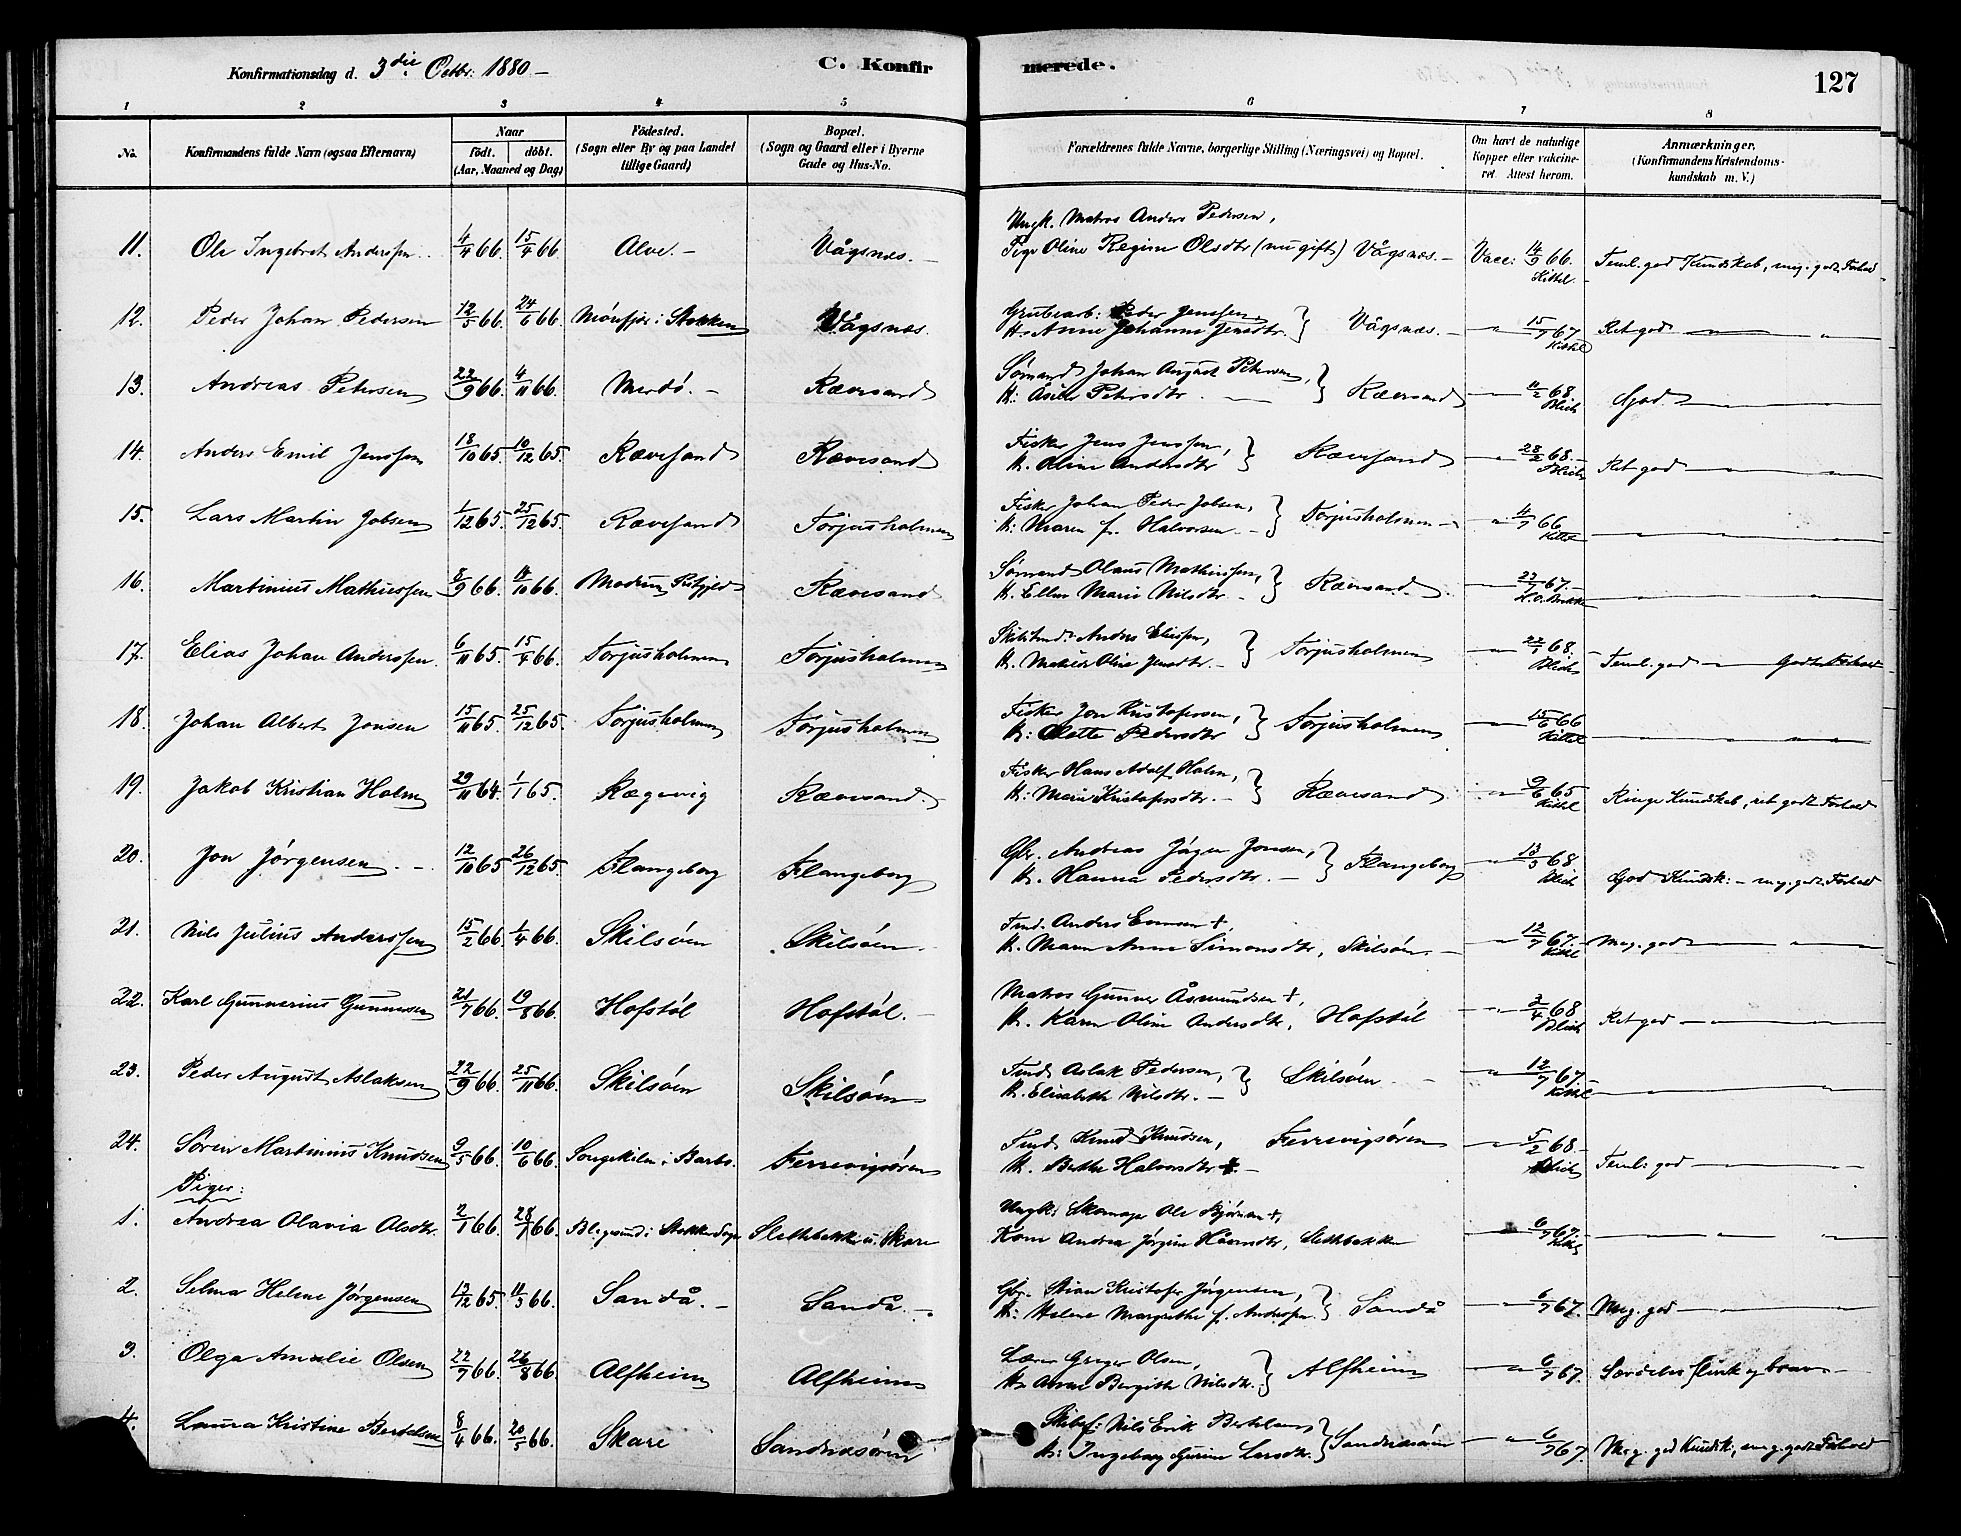 Konfirmationsdag d. 3die Octbr: 1880 – C. Konfirmerede. 127
1 2 3 4 5 6 7 8
No. Konfirmandens fulde Navn (ogsaa Efternavn) Naar født. døbt. (Aar, Maaned og Dag) Fødested. (Sogn eller By og paa Landet tillige Gaard) Bopæl. (Sogn og Gaard eller i Byerne Gade og Hus-No. Forældrenes fulde Navne, borgerlige Stilling (Næringsvei) og Bopæl. Om havt de naturlige Kopper eller vakcineret. Attest herom. Anmærkninger. (Konfirmandens Kristendomskundskab m. V.)
Ungk. Matros Anders Pedersen,
11. Ole Ingebret Anderssen 4/4 66. 15/4 66. Alve. – Vågsnæs. – Pige Oline Regine Olsdtr (nu gift) Vågsnæs. – Vacc: 14/9 66. Kittel. Teml. god Kundskab, meg. godt Forhold
12. Peder Johan Pedersen 12/5 66. 24/6 66. i Stokken Vågsnæs. Grubearb: Peder Jenssen, H. Anne Johanne Jensdtr. } Vågsnæs. – 15/7 67 Kittel Ret god
13. Andreas Petersen 22/9 66. 4/11 66. Merdø. – Rævesand Sømand Johan August Petersen, H: Petersdtr. } Rævesand 11/2 68. Blich God.
14. Anders Emil Jenssen 18/10 65. 10/12 65. Rævesand Rævesand Fisker Jens Jenssen, H. Oline Andersdtr } Rævesand 28/2 68. Blich Ret god
15. Lars Martin Jobsen 1/12 65. 25/12 65. Rævesand Torjusholmen Fisker Johan Peder Jobsen, H: Maren f. Halvorsen. – } Torjusholmen – 4/7 66 Kittel
16. Martinius Mathiessen 8/9 66. 14/10 66. Rævesand Sømand Olaus Mathiessen, H. Ellen Marie Nilsdtr – } Rævesand. 67.
17. Elias Johan Anderssen. 6/11 65. 15/4 66. Torjusholmen Torjusholmen Anders Eliessen, H. Oline Jensdtr. – } Torjusholmen 22/1 68. Blich Teml. god Godt Forhold
18. Johan Albert Jonsen 15/11 65. 25/12 65. Torjusholmen Torjusholmen Fisker Jon Kristofersen, H: Pedersdtr } Torjusholmen 15/6 66 Kittel
19. Jakob Kristian Holm 29/11 64. 1/1 65. Rægevig Rævesand. Fisker Hans Adolf Holm, H: Marie Kristofersdtr. – } Rævesand 9/6 65 Kittel Ringe Kundskab, ret godt Forhold
20. Jon Jørgensen. – 12/10 65 26/12 65. Flangeborg Flangeborg Gbr. Andreas Jonsen, H. Hanna Pedersdtr. – } Flangeborg 13/3 68 Blich God Kundsk: – meg. godt Forhold
21. Nils Julius Anderssen 15/2 66. 1/4 66. Skilsøen Skilsøen. Tmd. Anders +, H. Maren Anne Simonsdtr, Skilsøen. – 12/7 67. Kittel Meg. god
22. Karl Gunnerius Gunnersen 21/7 66. 19/8 66. Hofstøl Hofstøl. – Matros Gunner Åsmundsen +, H. Karen Oline Andersdtr, Hofstøl 3/4 68 Blich Ret god –
23. Peder August Aslaksen 22/9 66. 25/11 66. Skilsøen Skilsøen Tmd. Aslak Pedersen, H. Elisabeth Nilsdtr. – } Skilsøen. 12/7 67. Kittel
24. Søren Martinius Knudsen 9/5 66. 10/6 66. Songekilen i Barbo. Færrevigsøren Tmd. Knud Knudsen, H. Halvorsdtr +. Færrevigsøren 5/2 68. Blich Teml: god
Piger:
1. Andrea Olavia Olsdtr. 2/1 66. 28/1 66. i Stokken Slettebakken u. Skare Ungk: Skomager Ole Bjørnsen +, Kone Andrea Jørgine, Slettebakken 6/7 67. Kittel
2. Selma Helene Jørgensen 13/12 65. 11/3 66. Sandå. – Sandå. – Gbr. Kristofer Jørgensen, H: Helene Margrethe f. Anderssen. } Sandå 6/7 67. Meg. god
3. Olga Amalie Olsen 22/7 66. 26/8 66. Alfheim Alfheim Lærer Greger Olsen, H. Anne Bergithe Nilsdtr. } Alfheim 6/7 67. Særdeles flink og brav
4. Laura Kristine Bertelsen 8/4 66. 20/5 66. Skare Sandnæsøen Skibsf: Nils Erik Bertelsen, H: Ingeborg Gurine Larsdtr. } Sandnæsøen 6/7 67. Meg. god Kundsk:, meg. godt Forhold